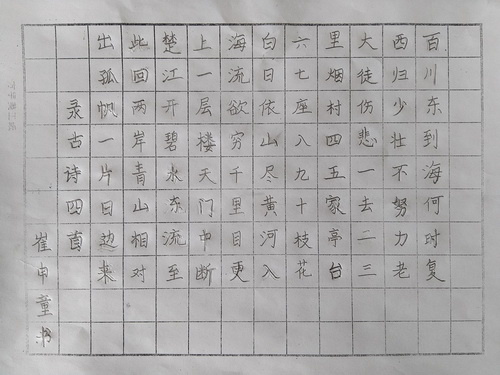 百川东到海何时复
西归少壮不努力老
大徒伤悲一去二三
里烟村四五家亭台
六七座八九十枝花
白日依山尽黄河入
海流欲穷千里目更
上一层楼天门中断
楚江开碧水东流至
此回两岸青山相对
出孤帆一片日边来
录古诗四首
崔申童书